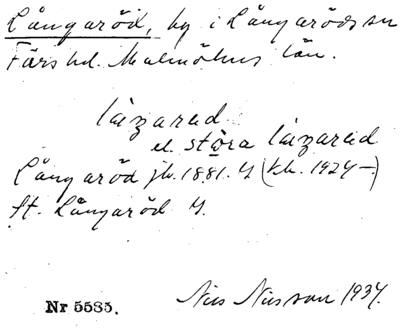 Långaröd, by i Långaröds sn
Färs hd. Malmöhus län.
låzarød
el. stora låzarød
Långaröd jb. 1881. 4 (kb. 1924–)
st. Långaröd 4.
Nr 5585.
Nils Nilsson 1934.